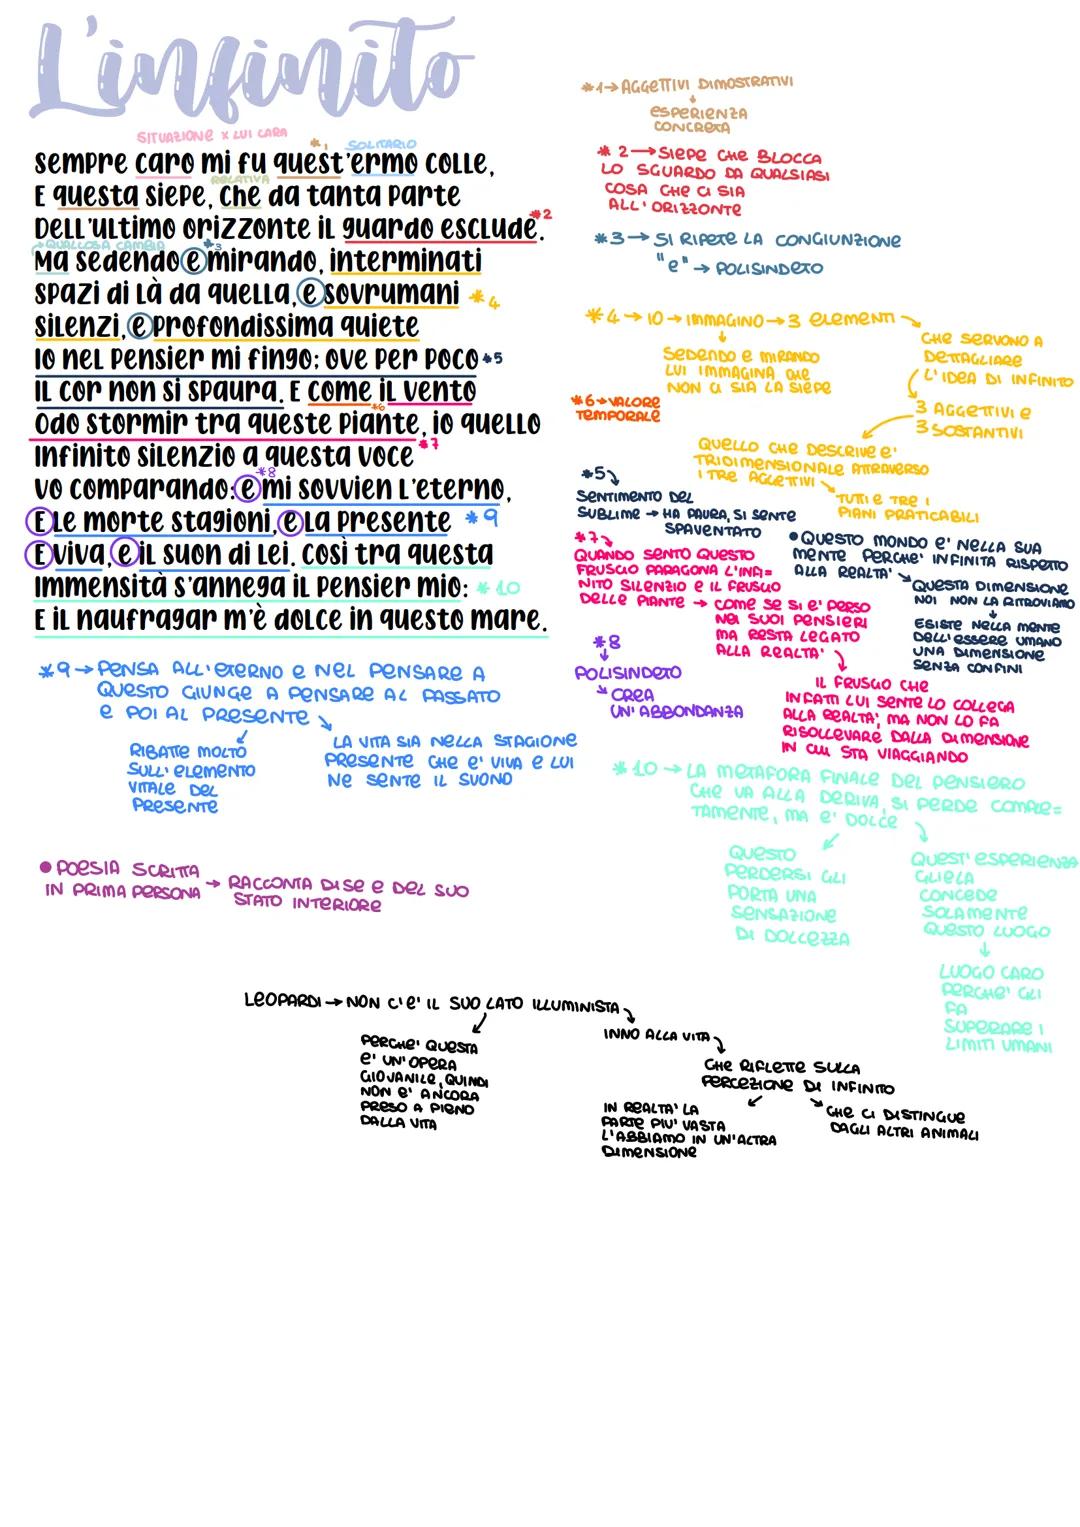 L'infinito
SITUAZIONE X LUI CARA
*1 SOLITARIO
SEMPRE CARO MI FU QUEST'ERMO COLLE,
RELATIVA
E QUESTA SIEPE, CHE DA TANTA PARTE
DELL'ULTIMO ORIZZONTE IL GUARDO ESCLUDE. *2
→QUALCOSA CAMBIA *3
MA SEDENDO E MIRANDO, INTERMINATI
SPAZI DI LÀ DA QUELLA, E SOVRUMANI *4
SILENZI, E PROFONDISSIMA QUIETE
IO NEL PENSIER MI FINGO; OVE PER POCO *5
IL COR NON SI SPAURA. E COME IL VENTO
*6
ODO STORMIR TRA QUESTE PIANTE, IO QUELLO
INFINITO SILENZIO A QUESTA VOCE *7
*8
VO COMPARANDO: E MI SOVVIEN L'ETERNO,
E LE MORTE STAGIONI, E LA PRESENTE *9
E VIVA, E IL SUON DI LEI. COSÌ TRA QUESTA
IMMENSITÀ S'ANNEGA IL PENSIER MIO: *10
E IL NAUFRAGAR M'È DOLCE IN QUESTO MARE.
*1→ AGGETTIVI DIMOSTRATIVI
↓
ESPERIENZA
CONCRETA
*2→SIEPE CHE BLOCCA
LO SGUARDO DA QUALSIASI
COSA CHE CI SIA
ALL'ORIZZONTE
*3→ SI RIPETE LA CONGIUNZIONE
"e"→ POLISINDETO
*4→IO→IMMAGINO→3 ELEMENTI
SEDENDO E MIRANDO
LUI IMMAGINA CHE
NON CI SIA LA SIEPE
CHE SERVONO A
DETTAGLIARE
L'IDEA DI INFINITO
3 AGGETTIVI E
3 SOSTANTIVI
QUELLO CHE DESCRIVE E'
TRIDIMENSIONALE ATTRAVERSO
I TRE AGGETTIVI
TUTTI E TRE I
PIANI PRATICABILI
*6→VALORE
TEMPORALE
*5
SENTIMENTO DEL
SUBLIME → HA PAURA, SI SENTE
SPAVENTATO
• QUESTO MONDO E' NELLA SUA
MENTE PERCHE' INFINITA RISPETTO
ALLA REALTA'
QUESTA DIMENSIONE
NOI NON LA RITROVIAMO
↓
ESISTE NELLA MENTE
DELL'ESSERE UMANO
UNA DIMENSIONE
SENZA CONFINI
*7
QUANDO SENTO QUESTO
FRUSCIO PARAGONA L'INFI=
NITO SILENZIO E IL FRUSCIO
DELLE PIANTE → COME SE SI E' PERSO
NEI SUOI PENSIERI
MA RESTA LEGATO
ALLA REALTA'
IL FRUSCIO CHE
INFATTI LUI SENTE LO COLLEGA
ALLA REALTA', MA NON LO FA
RISOLLEVARE DALLA DIMENSIONE
IN CUI STA VIAGGIANDO
*8
↓
POLISINDETO
CREA
UN'ABBONDANZA
*9→ PENSA ALL'ETERNO E NEL PENSARE A
QUESTO GIUNGE A PENSARE AL PASSATO
E POI AL PRESENTE
RIBATTE MOLTO
SULL'ELEMENTO
VITALE DEL
PRESENTE
LA VITA SIA NELLA STAGIONE
PRESENTE CHE E' VIVA E LUI
NE SENTE IL SUONO
*10→ LA METAFORA FINALE DEL PENSIERO
CHE VA ALLA DERIVA, SI PERDE COMPLE=
TAMENTE, MA E' DOLCE
QUESTO
PERDERSI GLI
PORTA UNA
SENSAZIONE
DI DOLCEZZA
QUEST'ESPERIENZA
GLIELA
CONCEDE
SOLAMENTE
QUESTO LUOGO
↓
LUOGO CARO
PERCHE' GLI
FA
SUPERARE I
LIMITI UMANI
• POESIA SCRITTA
IN PRIMA PERSONA → RACCONTA DI SE E DEL SUO
STATO INTERIORE
LEOPARDI → NON C'E' IL SUO LATO ILLUMINISTA
PERCHE' QUESTA
E' UN'OPERA
GIOVANILE, QUINDI
NON E' ANCORA
PRESO A PIENO
DALLA VITA
INNO ALLA VITA
CHE RIFLETTE SULLA
PERCEZIONE DI INFINITO
IN REALTA' LA
PARTE PIU' VASTA
L'ABBIAMO IN UN'ALTRA
DIMENSIONE
CHE CI DISTINGUE
DAGLI ALTRI ANIMALI